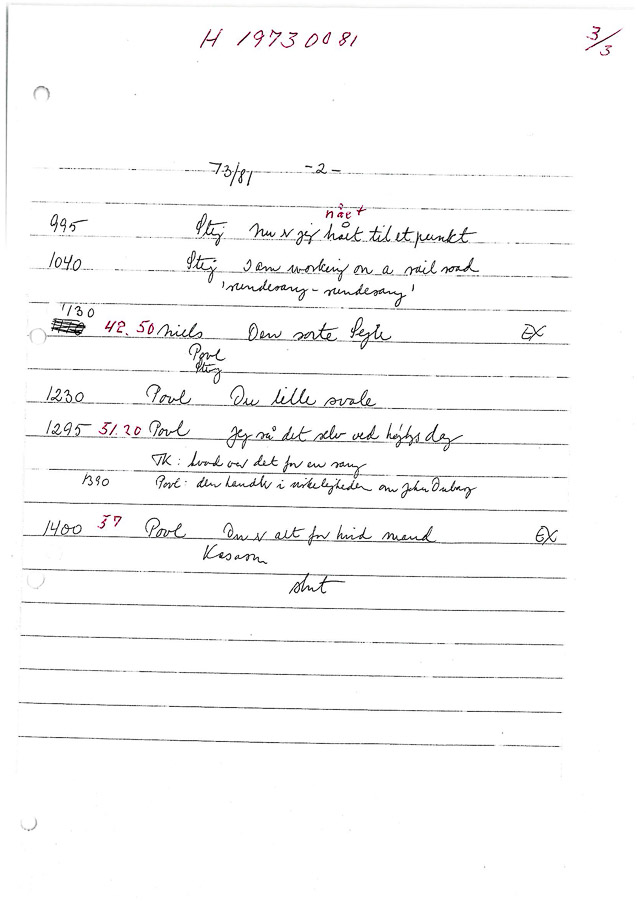 H 19730081
3/3
73/81 -2-
nået
995 Stig Nu er jeg nået til et punkt
1040 Stig I am working on a rail road
'rundesang - rundesang'
1130
42.50 Niels Den sorte Fugle EX
Povl
Stig
1230 Povl Du lille svale
1295 51.20 Povl Jeg så det selv ved højlys dag
TK: hvad var det for en sang
1390 Povl: den handler i virkeligheden om John
1400 57 Povl Du er alt for hvid mand EX
slut